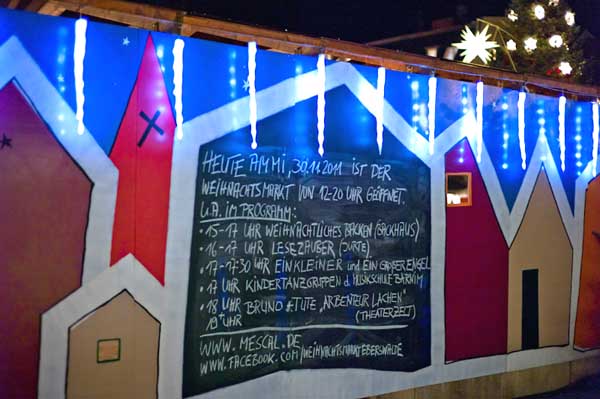 HEUTE AM MI, 30.11.2011 IST DER
WEIHNACHTSMARKT VON 12-20 UHR GEÖFFNET.
U.A. IM PROGRAMM:
• 15-17 UHR WEIHNACHTLICHES BACKEN (BACKHAUS)
• 16-17 UHR LESEZAUBER (JURTE)
• 17-17:30 UHR EIN KLEINER UND EIN GROßER ENGEL
• 17 UHR KINDERTANZGRUPPEN d. MUSIKSCHULE BARNIM
• 18 UHR BRUNO & TUTE „ARBENTEUR LACHEN"
19 UHR (THEATERZELT)
WWW.MESCAL.DE
WWW.FACEBOOK.COM/WEIHNACHTSMARKTEBERSWALDE